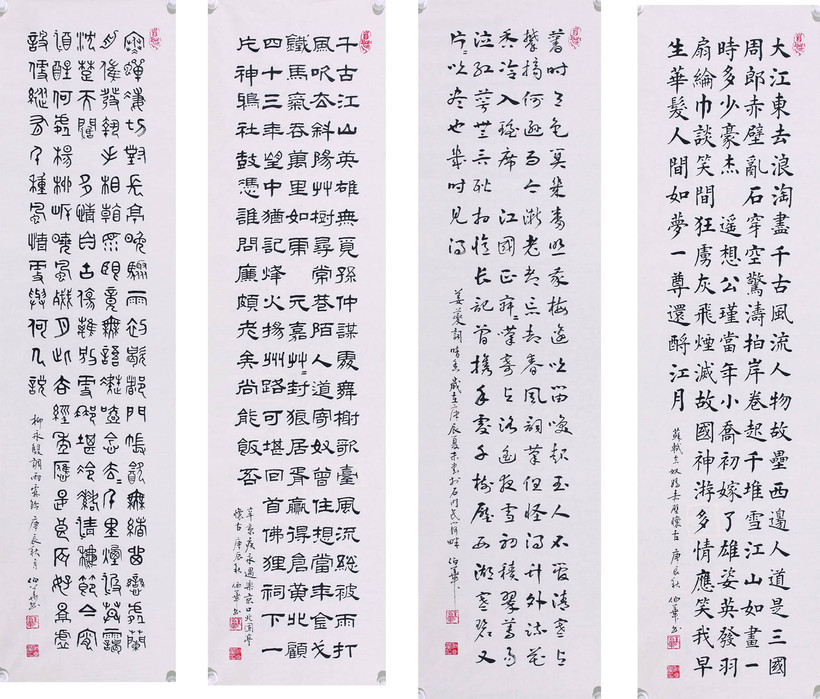 大江東去浪淘盡千古風流人物故壘西邊人道是三國
周郎赤壁亂石穿空驚濤拍岸卷起千堆雪江山如畫一
時多少豪杰 遥想公瑾當年小喬初嫁了雄姿英發羽
扇綸巾談笑間狂虜灰飛煙滅故國神游多情應笑我早
生華髮人間如夢一尊還酹江月
蘇軾念奴嬌赤壁懷古 庚辰秋 伯華書
舊時月色算幾番照我梅邊吹笛喚起玉人不管清寒與
攀摘何遜而今漸老都忘却春風詞筆但怪得竹外疏花
香冷入瑤席 江國正寂〻嘆寄與路遥夜雪初積翠尊易
泣紅萼無言耿相憶長記曾攜手處千樹壓西湖寒碧又
片〻吹盡也幾時見得
姜夔詞暗香 歲在庚辰夏末書於石門 伯華
千古江山英雄無覓孫仲謀處舞榭歌臺風流總被雨打
風吹去斜陽艸樹尋常巷陌人道寄奴曾住想當年金戈
鐵馬氣吞萬里如虎 元嘉艸〻封狼居胥贏得倉黄北顧
四十三年望中猶記烽火揚州路可堪回首佛狸祠下一
片神鴉社鼓憑誰問廉頗老矣尚能飯否
辛棄疾永遇樂京口北固亭
懷古 庚辰秋 伯華書
寒蟬凄切對長亭晚驟雨初歇都門帳飲無緒留戀處蘭
舟催發執手相看淚眼竟無語凝噎念去〻千里煙波暮靄
沈〻楚天闊 多情自古傷離別更那堪冷落清秋節今宵
酒醒何處楊柳岸曉風殘月此去經年應是良辰好景虛
設便縱有千種風情更與何人說
柳永詞雨霖鈴 庚辰秋月 伯華書